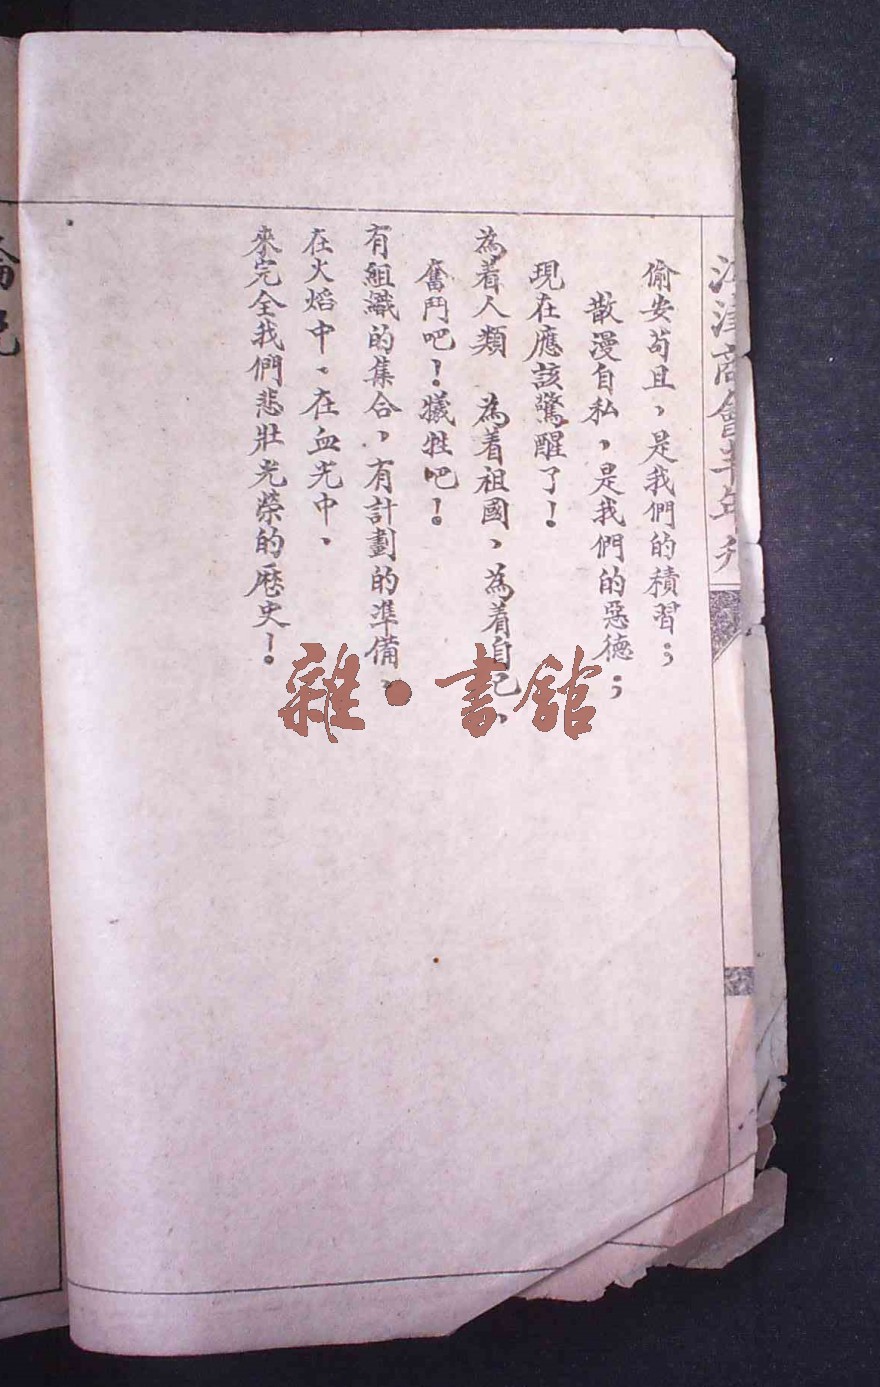 江津商會半年刋
偷安苟且，是我們的積習；
散漫自私，是我們的惡德；
現在應該驚醒了！
為着人類　為着祖國、為着自己、
奮鬥吧！犠牲吧！
有組織的集合，有計劃的準備、
在火焰中、在血光中、
來完全我們悲壯光榮的歷史！
雜·書館